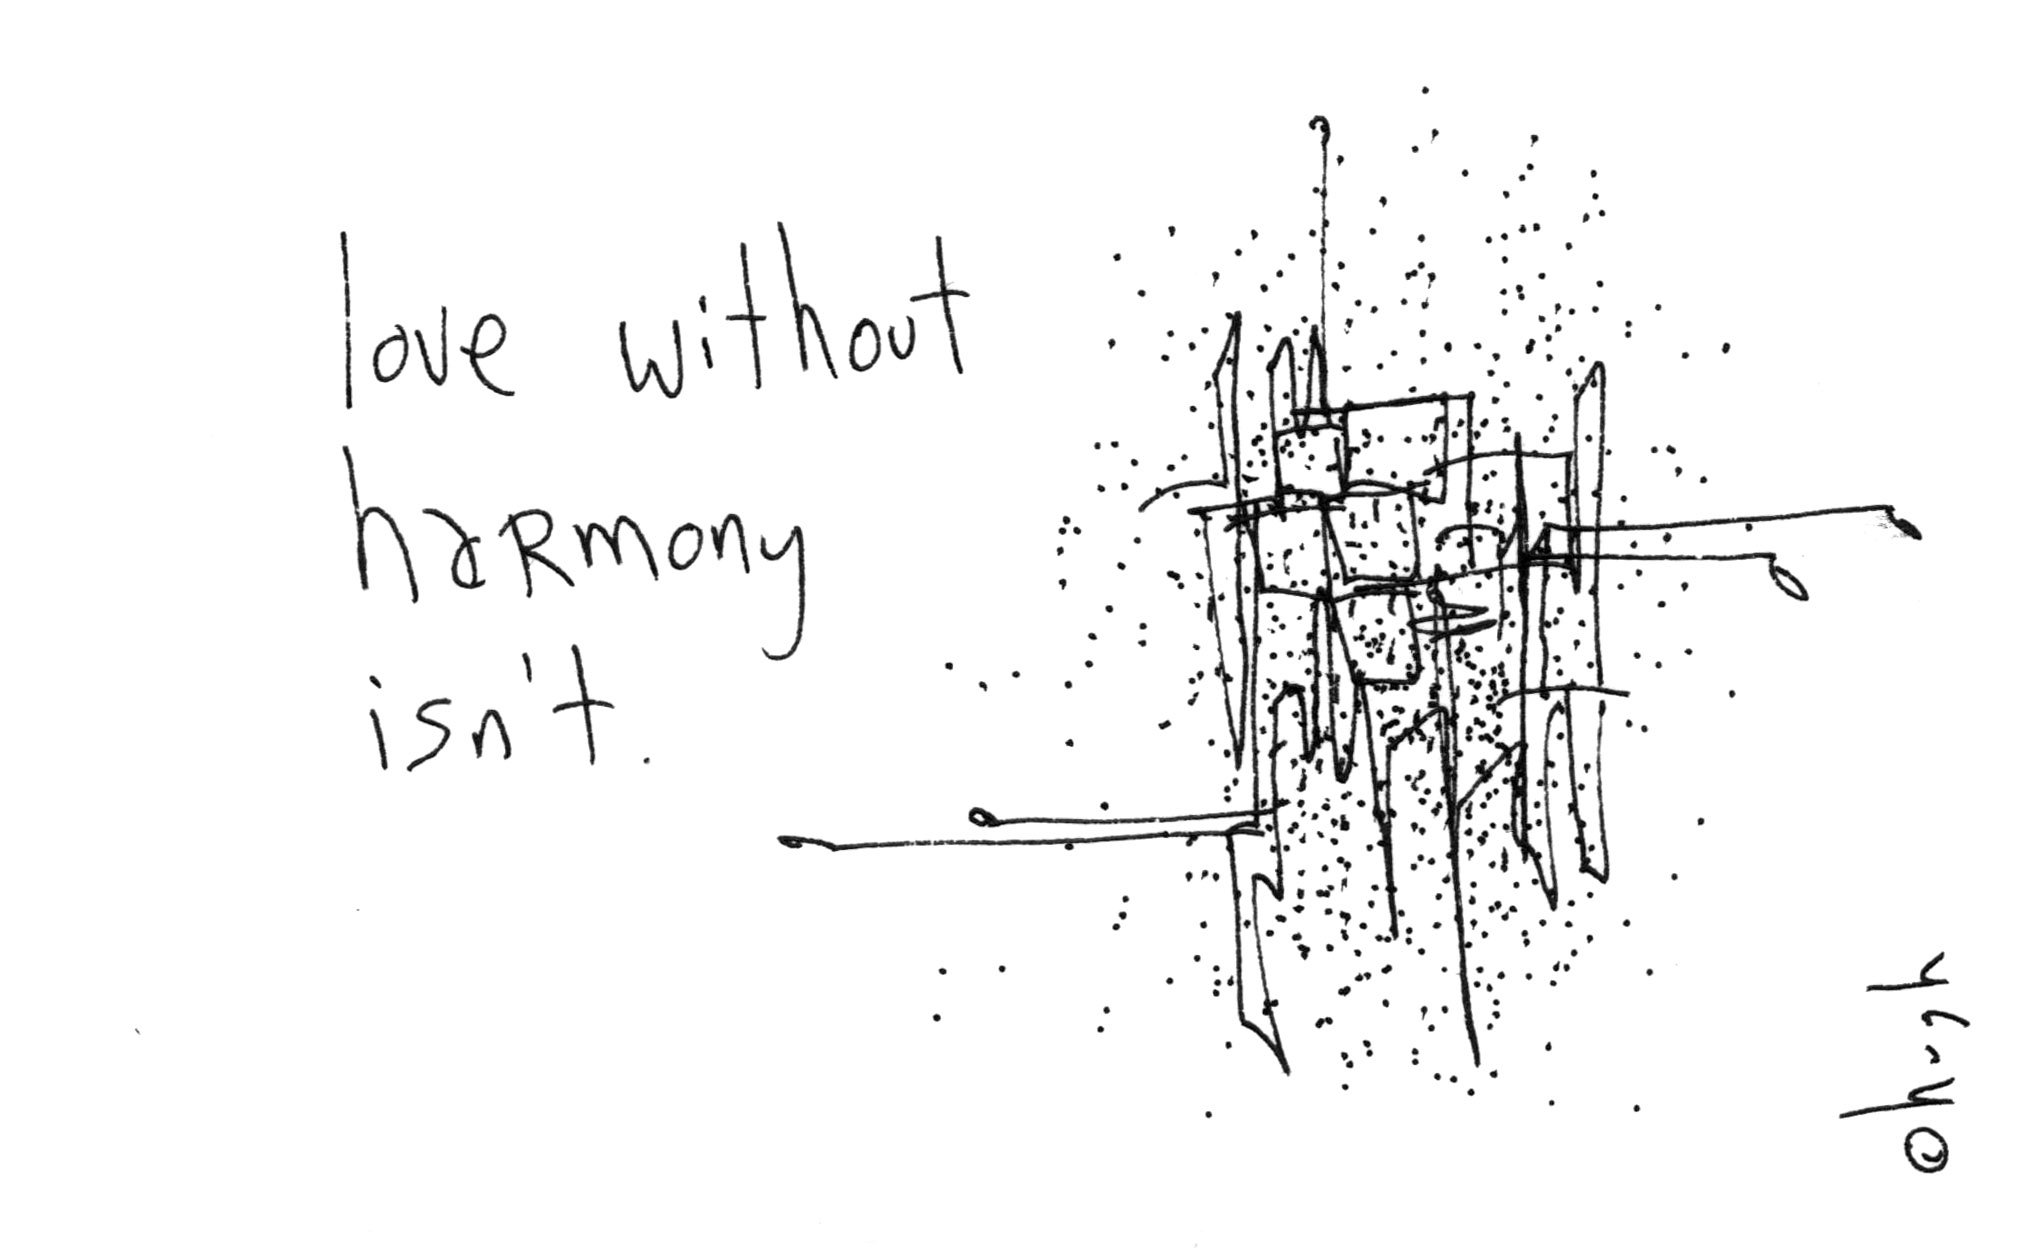 love without
harmony
isn't.
©hugh